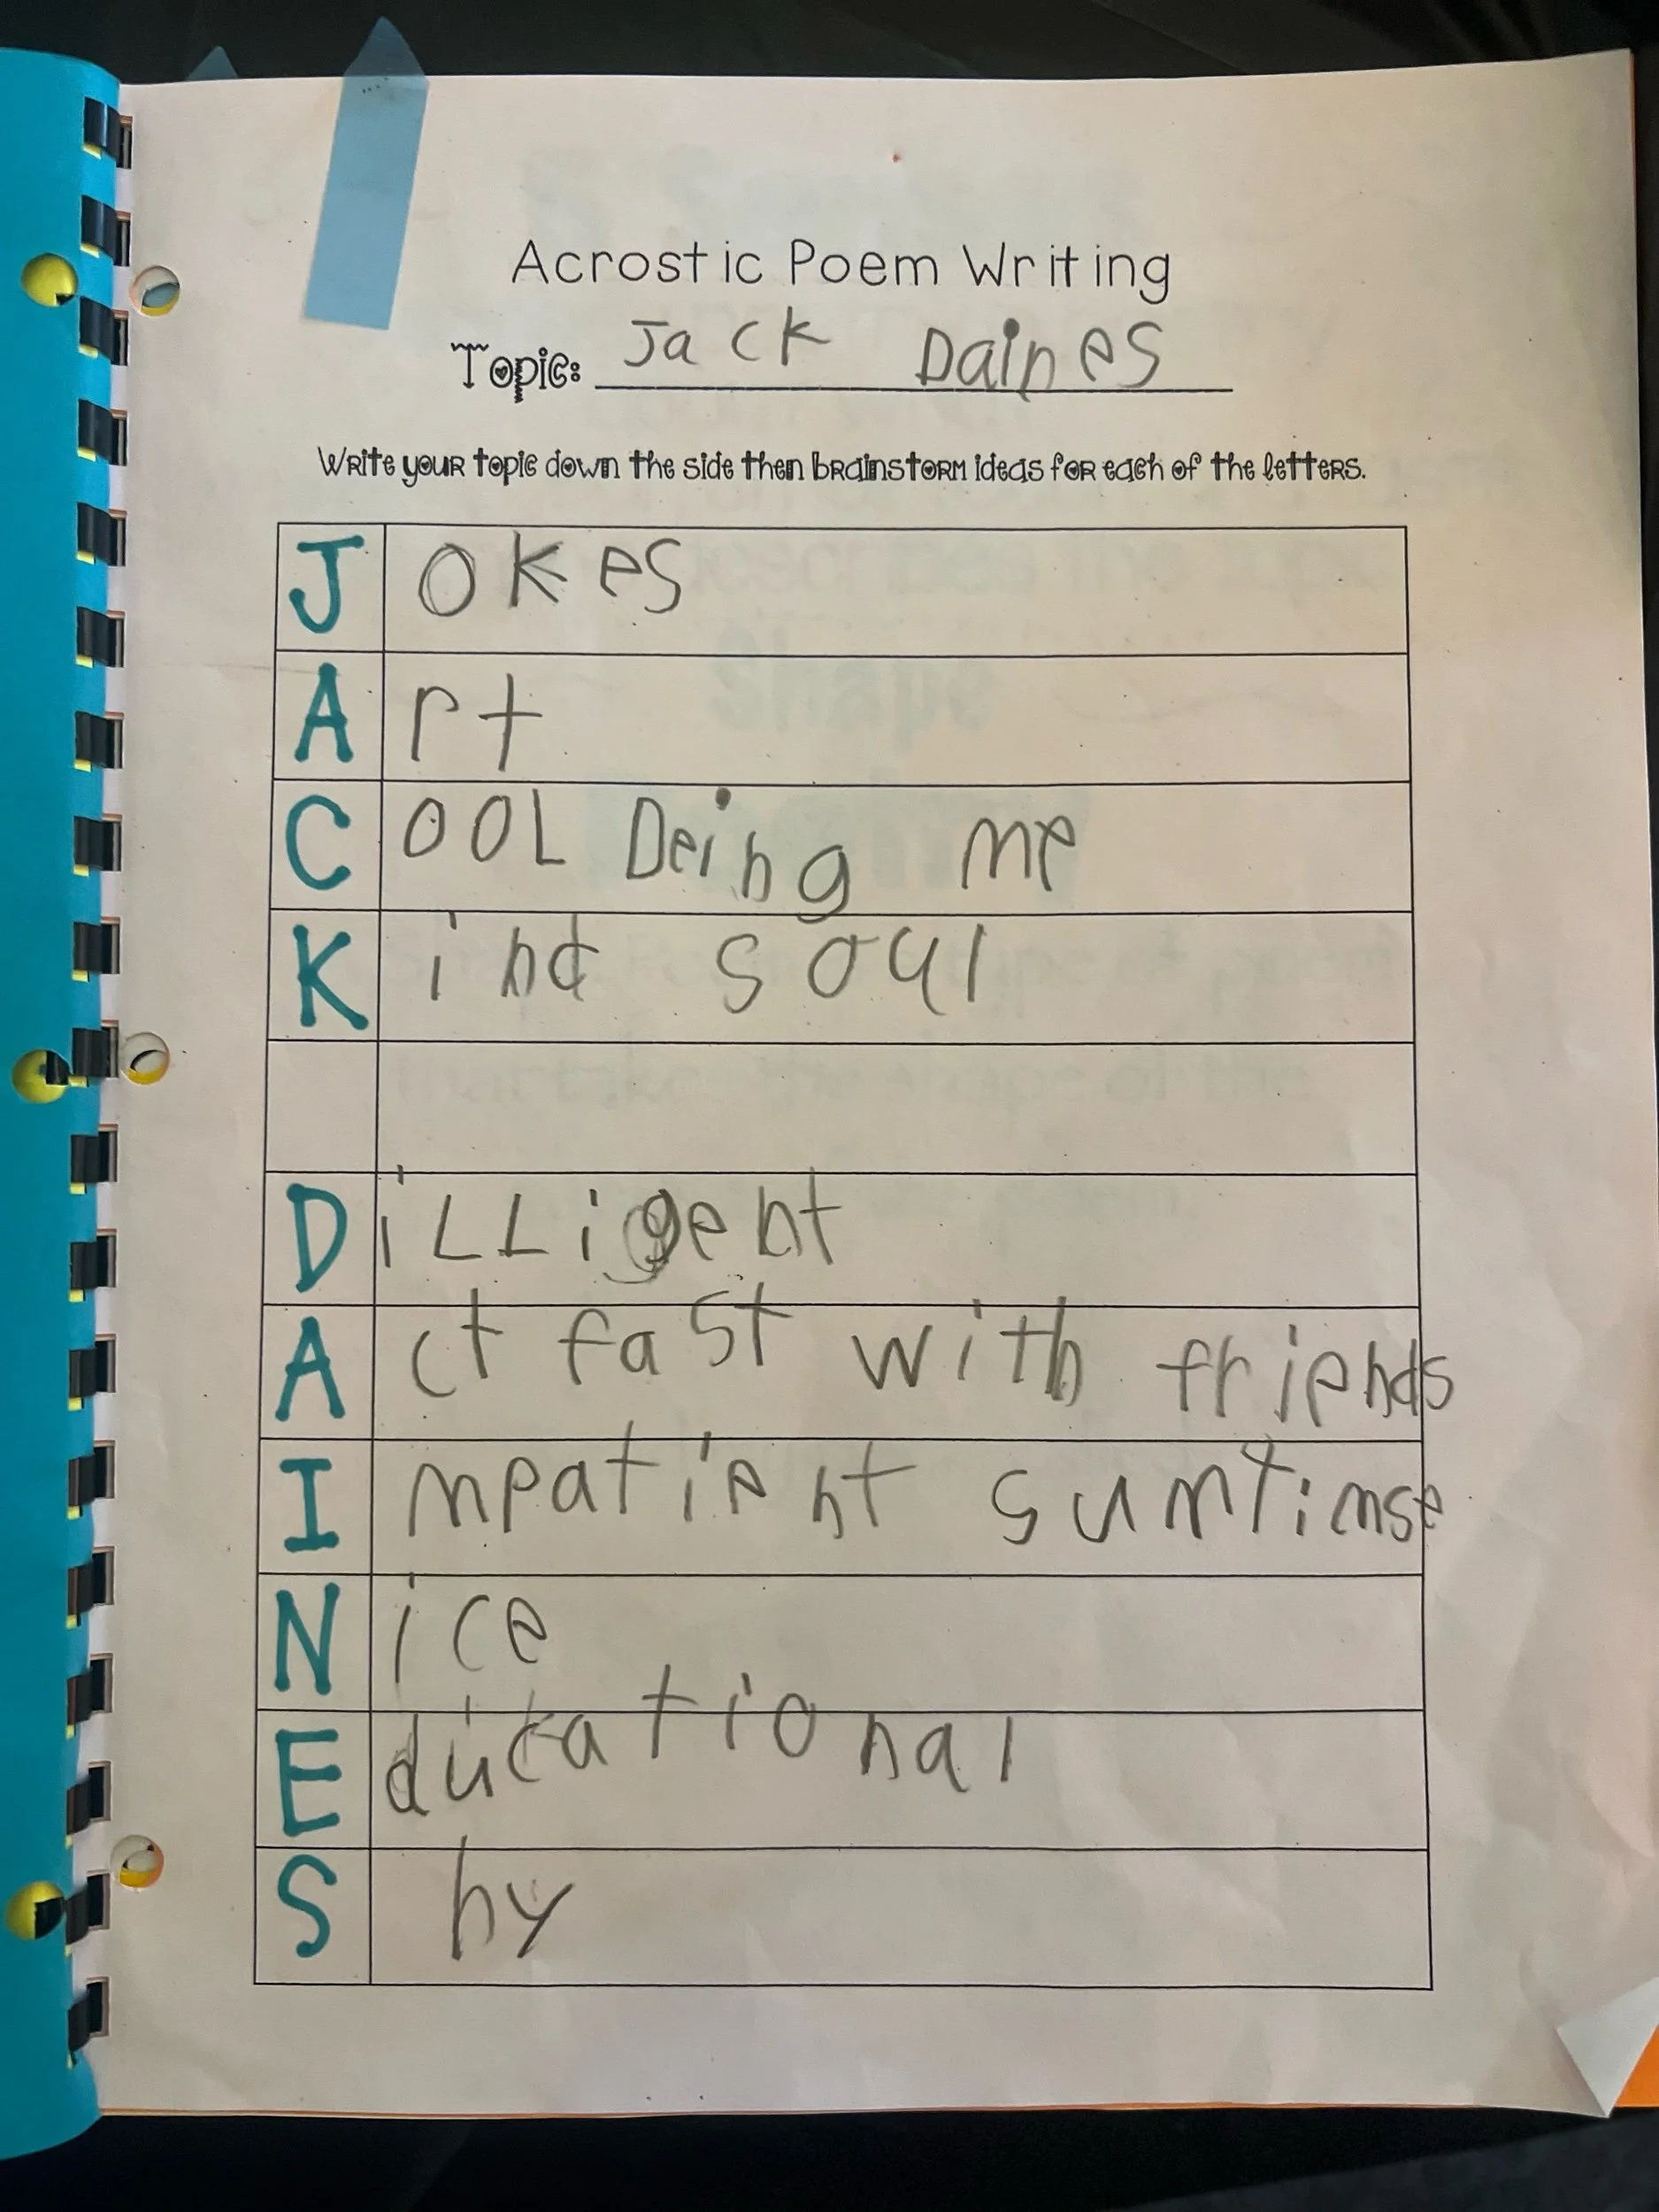 Acrostic Poem Writing
Topic: Jack Daines
Write your topic down the side then brainstorm ideas for each of the letters.
J okes
A rt
C OOL Deing me
K ind soul
D iLLigent
A ct fast with friends
I mpatient sumtimse
N ice
E ducational
S hy